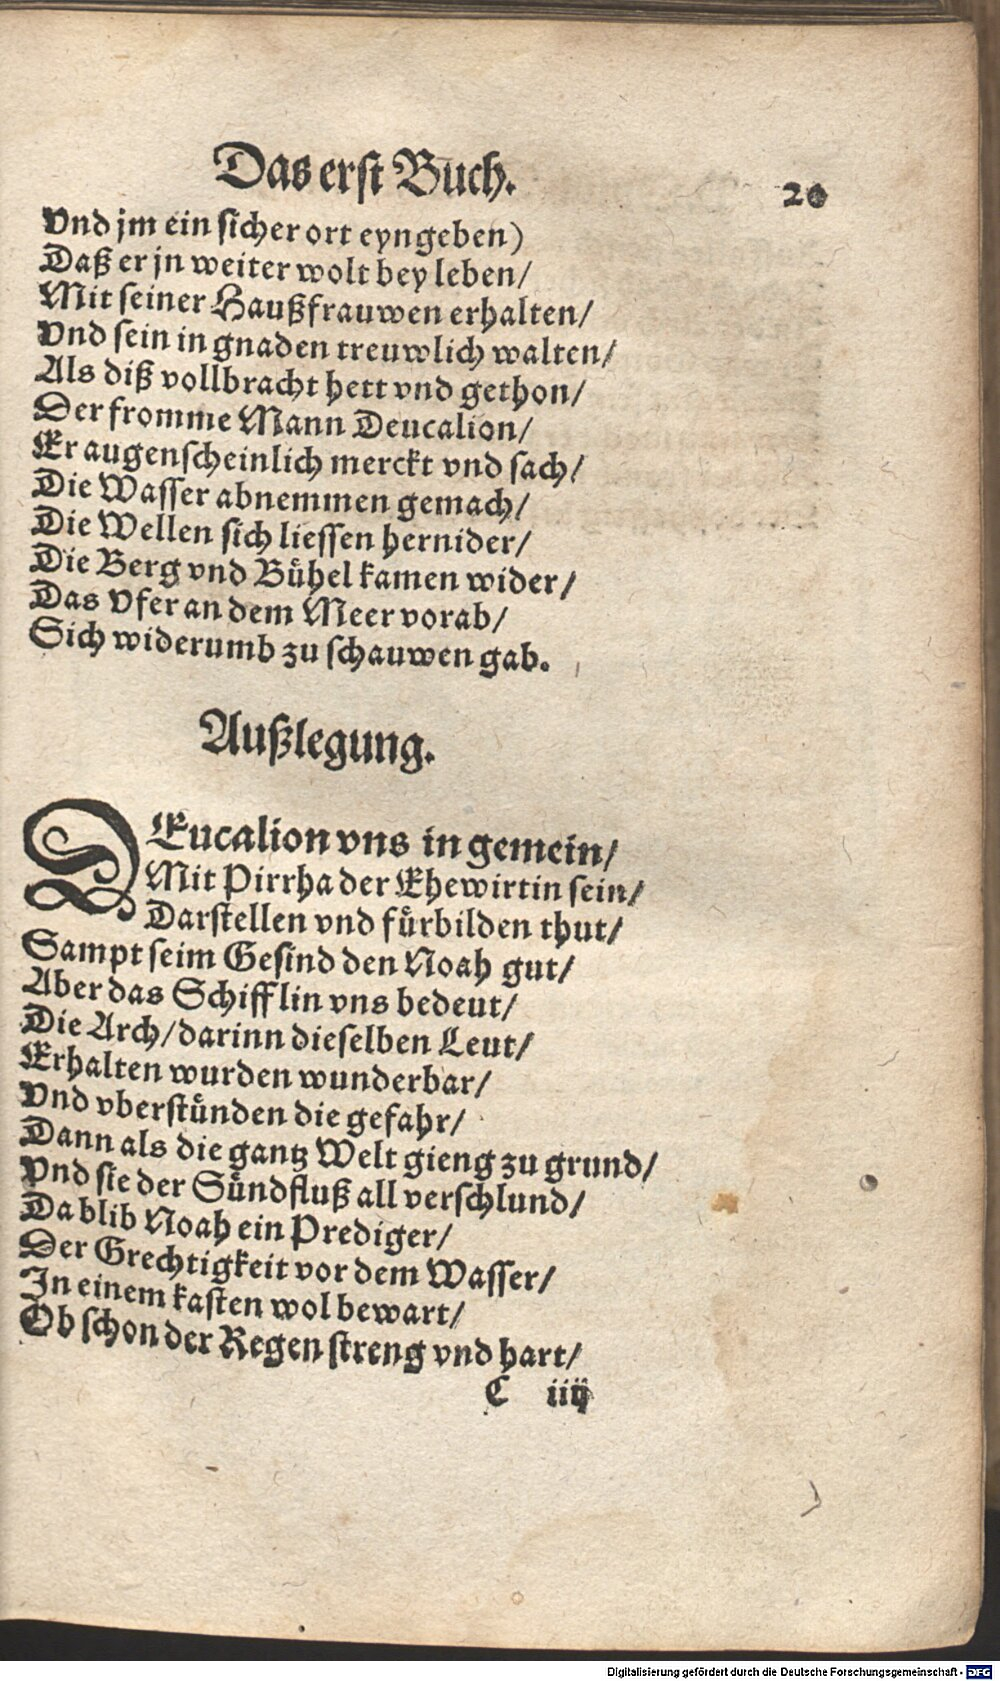 Das erst Buch. 20
Vnd jm ein sicher ort eyngeben)
Daß er jn weiter wolt bey leben/
Mit seiner Haußfrauwen erhalten/
Vnd sein in gnaden treuwlich walten/
Als diß vollbracht hett vnd gethon/
Der fromme Mann Deucalion/
Er augenscheinlich merckt vnd sach/
Die Wasser abnemmen gemach/
Die Wellen sich liessen hernider/
Die Berg vnd Bühel kamen wider/
Das Vfer an dem Meer vorab/
Sich widerumb zu schauwen gab.
Außlegung.
DEucalion vns in gemein/
Mit Pirrha der Ehewirtin sein/
Darstellen vnd fürbilden thut/
Sampt seim Gesind den Noah gut/
Aber das Schifflin vns bedeut/
Die Arch/darinn dieselben Leut/
Erhalten wurden wunderbar/
Vnd vberstünden die gefahr/
Dann als die gantz Welt gieng zu grund/
Vnd sie der Sündfluß all verschlund/
Da blib Noah ein Prediger/
Der Grechtigkeit vor dem Wasser/
In einem kasten wol bewart/
Ob schon der Regen streng vnd hart/
C iiij
Digitalisierung gefördert durch die Deutsche Forschungsgemeinschaft - DFG